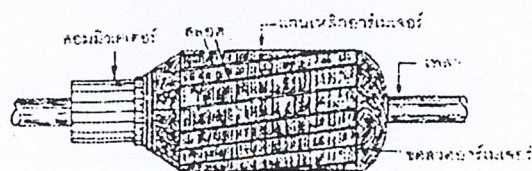 คอมมิวเตเตอร์
สลอต
แกนเหล็กอาร์เมเจอร์
เพลา
ขดลวดอาร์เมเจอร์